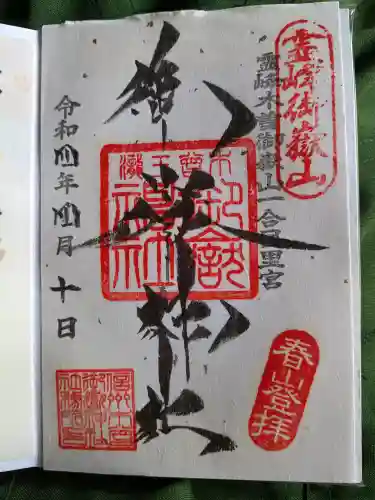 霊峰御嶽山
霊峰木曽御嶽山一合目里宮
御嶽神社
春山登拝
令和四年四月十日